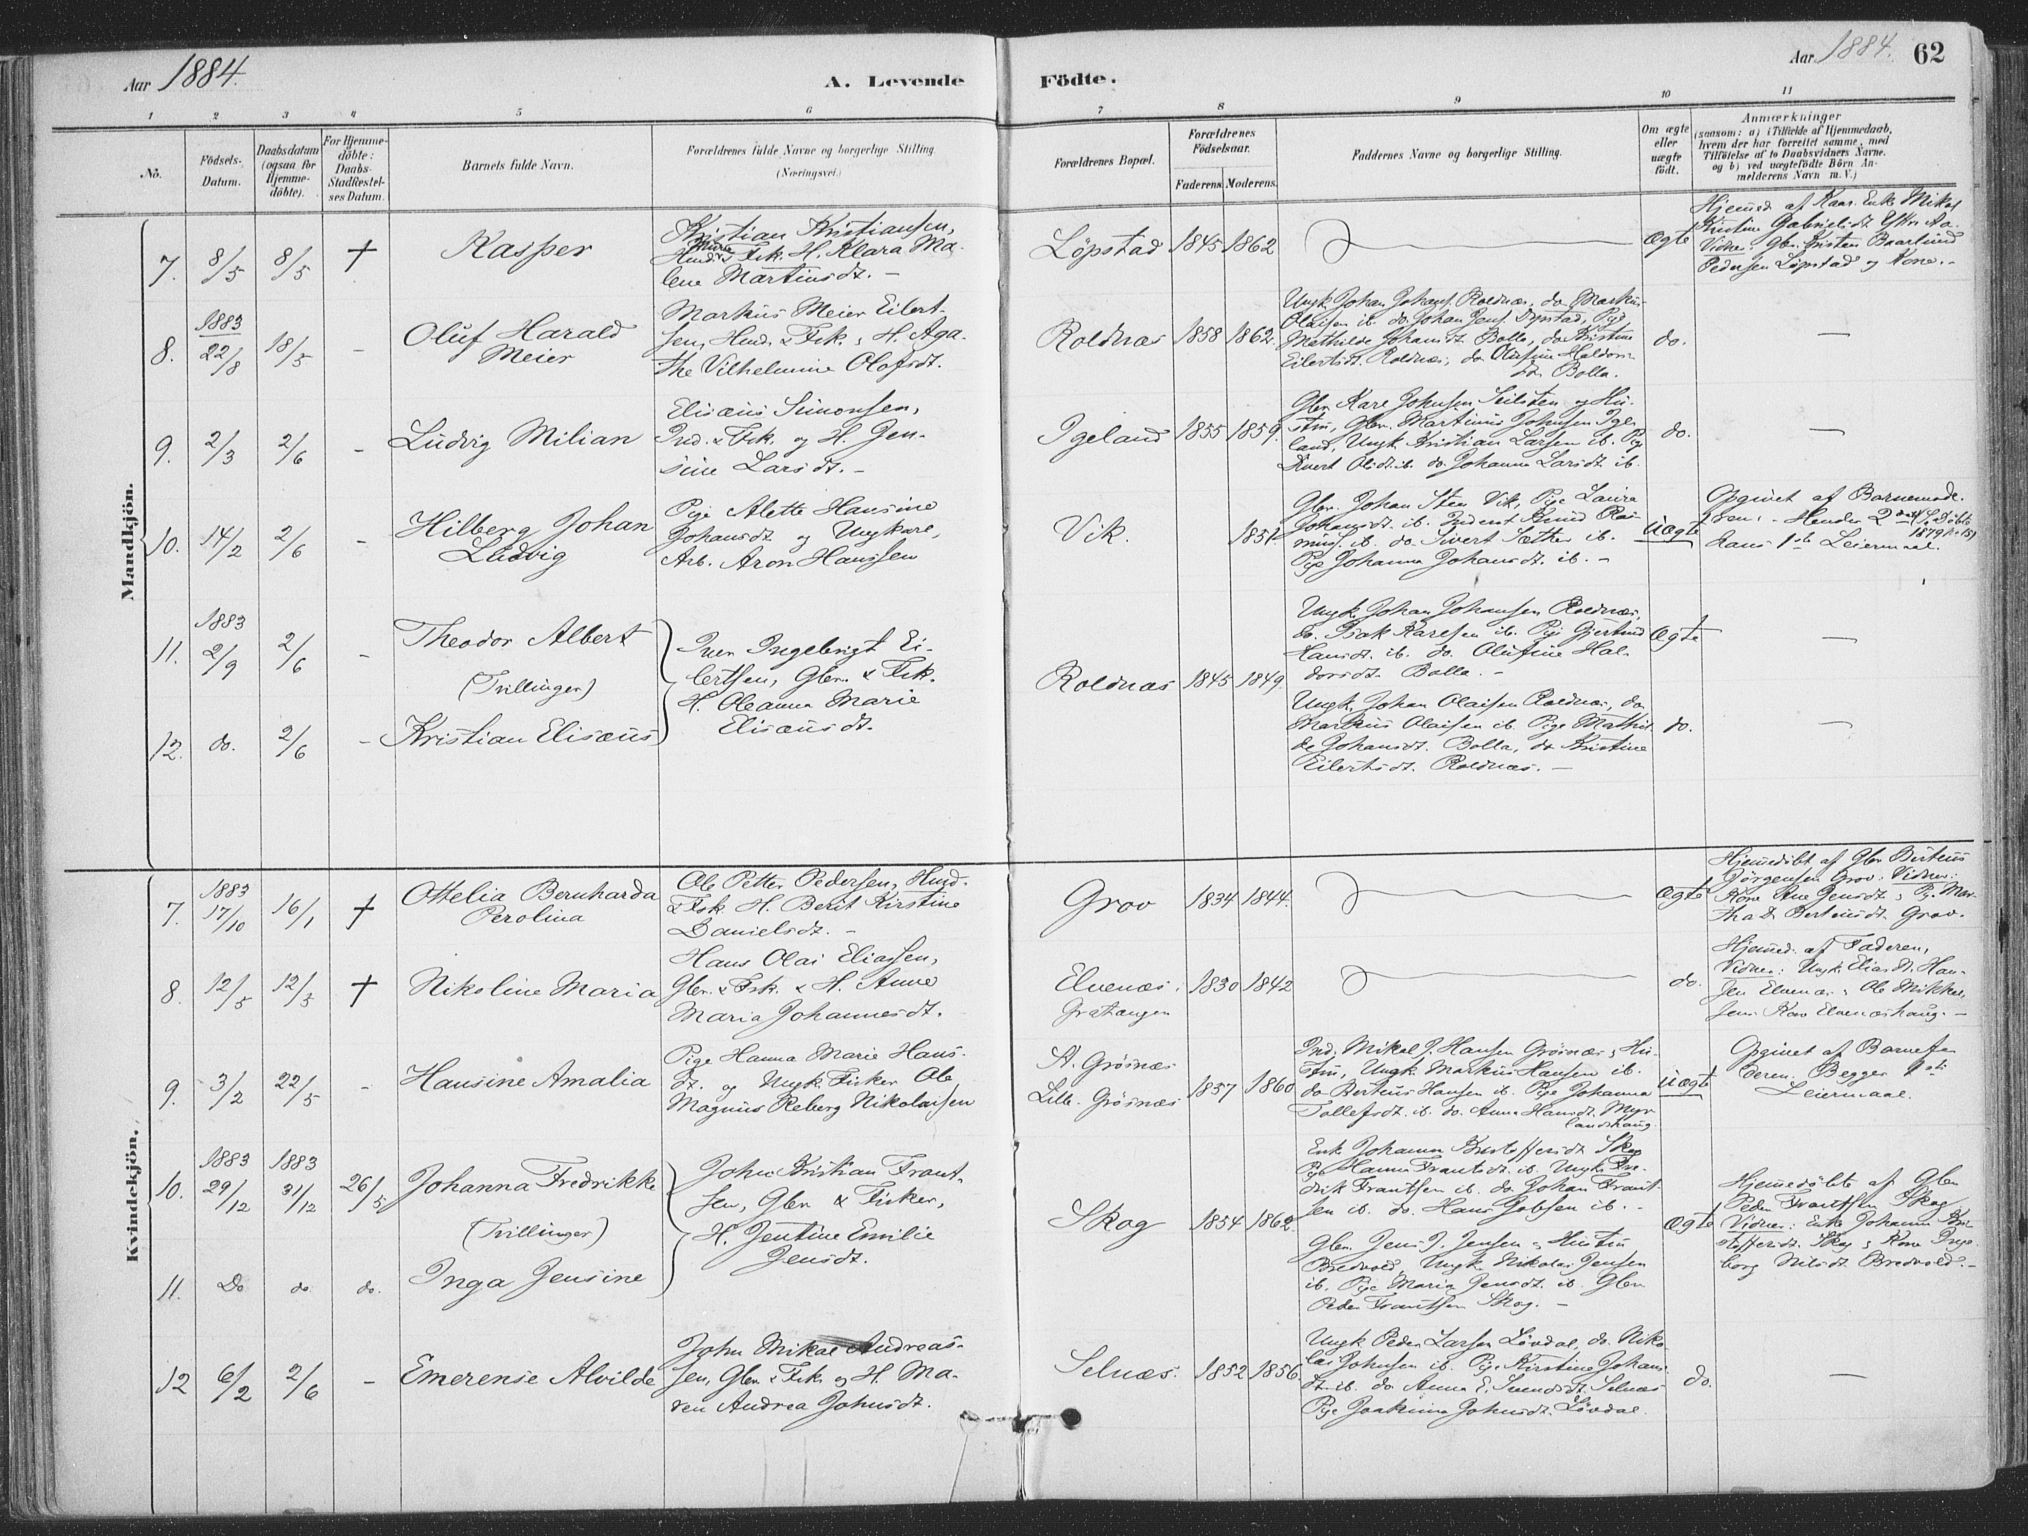 Aar 1884.
A. Levende Födte.
Aar 1884. 62
1 2 3 4 5 6 7 8 9 10 11
No.
Födsels-
Datum.
Daabsdatum
(ogsaa for
Hjemme-
döbte).
For Hjemme-
döbte:
Daabs-
Stadfæstel-
ses Datum.
Barnets fulde Navn.
Forældrenes fulde Navne og borgerlige Stilling
(Næringsvei.)
Forældrenes Bopæl.
Forældrenes
Födselsaar.
Faderens. Moderens.
Faddernes Navne og borgerlige Stilling.
Om ægte
eller
uægte
födt.
Anmærkninger
(saasom: a) i Tilfælde af Hjemmedaab,
hvem der har forrettet samme, med
Tilföielse af to Daabsvidners Navne.
og b) ved uægtefödte Börn An-
melderens Navn m. V.)
Mandkjön.
7. 8/5 8/5 † Kasper
Kristian Kristiansen,
Fsk. H. Klara Ma-
lene Martinsdt. -
Löpstad 1845 1862 Ægte
Hjemmed af Enke Mikal
Kristine Gabrielsdt
Vidne: Gbr. Kristen
Pedersen Löpstad og Kone. -
8. 1883
22/8 18/5 - Oluf Harald
Meier
Markus Meier Eilert-
sen, Husm. & Fsk. & H. Aga-
the Vilhelmine Olofsdt.
Roldnæs 1858 1862.
Ungk. Johan Johans. Roldnæs, do Markus
Olaisen ib. do. Johan Jens. Löpstad, Pige
Mathilde Johansdt. Bolla, do Kristine
Eilertsdt. Roldnæs, do Olufine Haldors-
dt. Bolla.
do. -
9. 2/3 2/6 - Ludvig Milian
Elisæus Simonsen,
Ind. & Fsk. og H. Jen-
sine Larsdt. -
Igeland 1855 1859.
Gbr. Karl Johnsen Seilsten og Hu-
stru, Gbr. Martinus Johnsen Ige-
land, Ungk. Kristian Larsen ib. Pige
Sivert Olsdt. ib. do. Johanna Larsdt. ib.
do. -
10. 14/2 2/6 - Hilberg Johan
Ludvig
Pige Alette Hansine
Johansdt og Ungkarl,
Arb. Aron Hanssen
Vik. 1851.
Gbr. Johan Sten Vik, Pige Laura
Johansdt. ib. Ras-
muss. ib. do. Sivert Sæther ib.
Pige Johanna Johansdt. ib. -
Uægte
Opgivet af Barnemode-
ren. - Hendes 2det
hans 1ste Leiermaal.
11. 1883
2/9 2/6 - Theodor Albert
(Tvillinger)
Iver Ingebrigt Ei-
lertsen, Gbr. & Fsk.
H. Oleanna Marie
Elisæusdt.
Roldnæs 1845 1849.
Ungk. Johan Johansen Roldnæs,
do. Isak Karlsen ib. Pige Gjertrud
Hansdt. ib. do. Olufine Hal-
dorsdt. Bolla. -
Ægte -
12. do. 2/6 - Kristian Elisæus
Ungk. Johan Olaisen Roldnæs, do
Markus Olaisen ib. Pige Mathil-
de Johansdt. Bolla, do Kristine
Eilertsdt. Roldnæs. -
do. -
Kvindekjön.
7. 1883
17/10 16/1 † Ottelia Bernharda
Perolina
Ole Petter Pedersen, Husm.
& Fsk. H. Berit Kirstine
Danielsdt. -
Grov 1834 1844. Ægte
Hjemmedöbt af Gbr. Berteus
Jörgensen Grov. Vidner:
Kone Ane Jensdt. & Pi. Mar-
tha D. Berteusdt. Grov.
8. 12/5 12/5 † Nikoline Maria
Hans Olai Eliassen,
Gbr. & Fsk. & H. Anne
Maria Johannesdt.
Elvenæs,
Gratangen 1830 1842 do.
Hjemmed. af Faderen,
Vidner: Ungk. Elias Han-
sen Elvenæs & Ole Mikkel-
sens Kone Elvenæshaug. -
9. 3/2 22/5 - Hansine Amalia
Pige Hanna Marie Hans-
dt. og Ungk. Fisker Ole
Magnus Reberg Nikolaisen
A. Grösnæs
Lille-Grösnæs 1857 1860
Ind. Mikal J. Hansen Grösnæs & Hu-
stru, Ungk. Markus Hansen ib.
do Berteus Hansen ib. Pige Johanna
Tollefsdt. ib. do. Anna Hansdt. Myr-
landshaug.
Uægte
Opgivet af Barnefa-
deren. Begges 1ste
Leiermaal.
10. 1883
29/12 1883
31/12 26/5 Johanna Fredrikke
(Tvillinger)
John Kristian Frant-
sen, Gbr & Fisker,
H. Jentine Emilie
Jensdt.
Skog 1854 1862.
Enk. Johanna Kristoffersdt Skog
Pige Hanna Frantsdt. ib. Ungk. Fre-
drik Frantsen ib. do. Johan Frant-
sen ib. do. Hans Jobsen ib. -
Ægte
Hjemmedöbte af Gbr.
Peder Frantsen Skog
Vidner: Enke Johanna Kri-
stoffersdt. Skog & Kone Inge-
borg Nilsdt. Bredvold. -
11. Do do do. Inga Jensine
Gbr. Jens J. Jensen & Hustru
Bredvold, Ungk. Nikolai Jensen
ib. Pige Maria Jensdt. ib. Gbr.
Peder Frantsen Skog. -
12 6/2 2/6 - Emerense Alvilde
John Mikal Andreas-
sen, Gbr. & Fsk. og H. Ma-
ren Andrea Johnsdt.
Selnæs. 1852 1856.
Ungk. Peder Larsen Lövdal, do. Niko-
lai Johnsen ib. Pige Kirstine Johans-
dt. ib. do Anna E. Svendsdt. Selnæs
Pige Joakima Johnsdt. Lövdal.
do. -